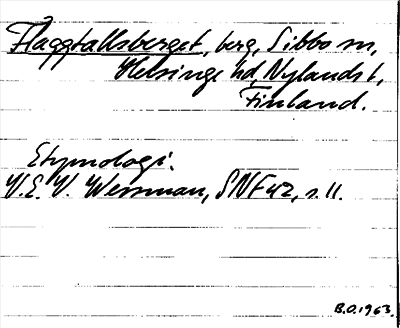 Flaggtallsberget, berg, Sibbo sn,
Helsinge hd, Nylands l,
Finland.
Etymologi.
V.E.V. Wessman, SNF 42, s. 11.
B.O. 1963.